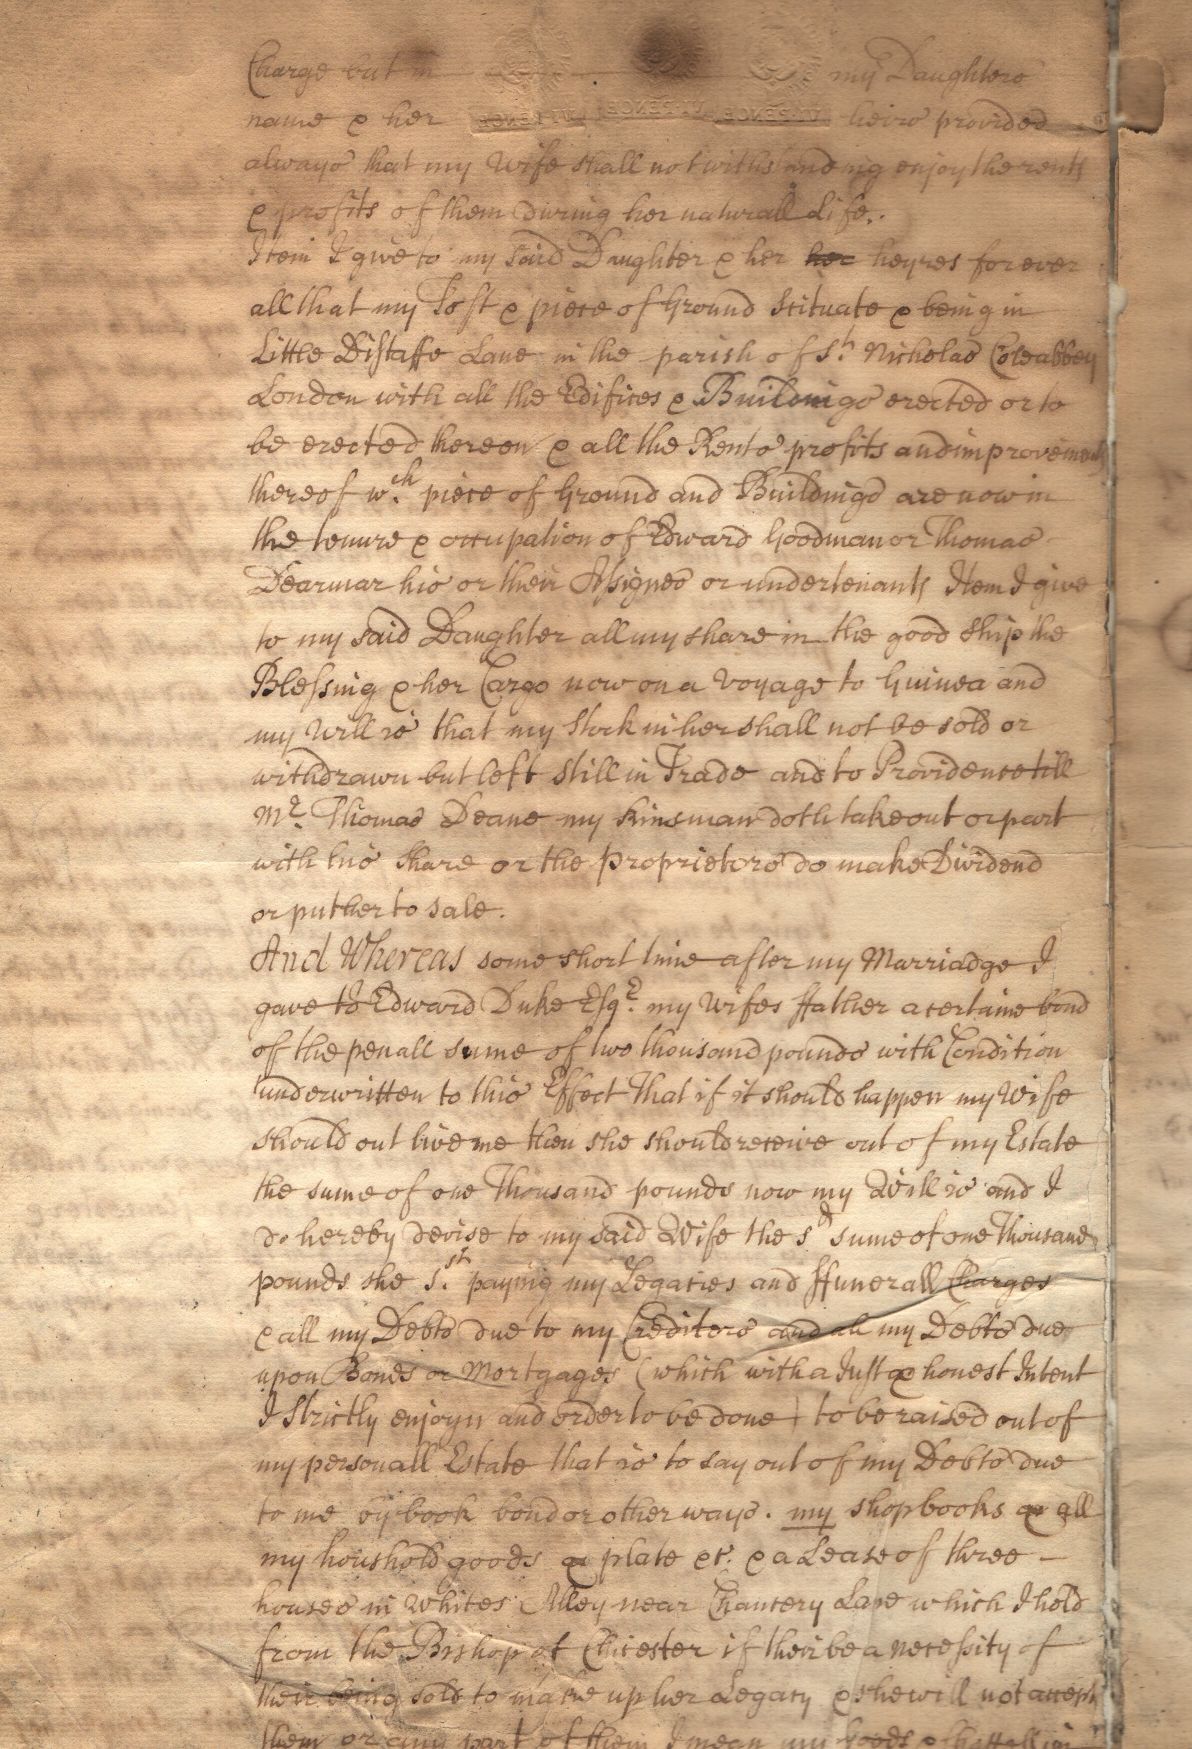 Charge but in my Daughters
name & her heirs provided
VI PENCE VI PENCE VI PENCE
always that my Wife shall notwithstanding enjoy the rents
& profits of them during her naturall Life.
Item I give to my said Daughter & her her heyres for ever
all that my Toft & piece of Ground Scituate & being in
Little Distaffe Lane in the parish of St. Nicholas Coleabbey
London with all the Edifices & Buildings erected or to
be erected thereon & all the Rents profits and improvements
thereof wch. piece of Ground and Buildings are now in
the tenure & occupation of Edward Goodman or Thomas
Dearmar his or their Assignes or undertenants Item I give
to my said Daughter all my share in the good Ship the
Blessing & her Cargo now on a Voyage to Guinea and
my Will is that my Stock in her shall not be sold or
withdrawn but left still in Trade and to Providence till
Mr. Thomas Deane my Kinsman doth take out or part
with his Share or the Proprietors do make Dividend
or put her to sale.
And Whereas some short time after my Marriadge I
gave to Edward Duke Esqr. my Wifes ffather a certaine bond
of the penall sume of two thousand pounds with Condition
underwritten to this Effect That if it should happen my Wife
should out live me then she should receive out of my Estate
the sume of one Thousand pounds now my Will is and I
do hereby devise to my said Wife the sd sume of one Thousand
pounds she f.st paying my Legacies and ffunerall Charges
& all my Debts due to my Creditors and all my Debts due
upon Bonds or Mortgages (which with a Just & honest Intent
I Strictly enjoyn and order to be done) to be raised out of
my personall Estate that is to say out of my Debts due
to me by book bond or other ways. my shopbooks & all
my houshold goods & plate &c. & a Lease of three
houses in Whites Alley near Chancery Lane which I hold
from the Bishop of Chicester if their be a necessity of
their being sold to make up her Legacy & she will not accept
them or any part of them I mean my Goods &